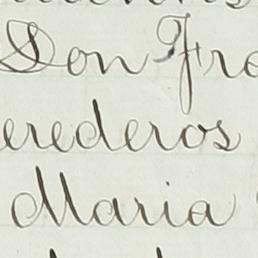 Don Fra
erederos
Maria